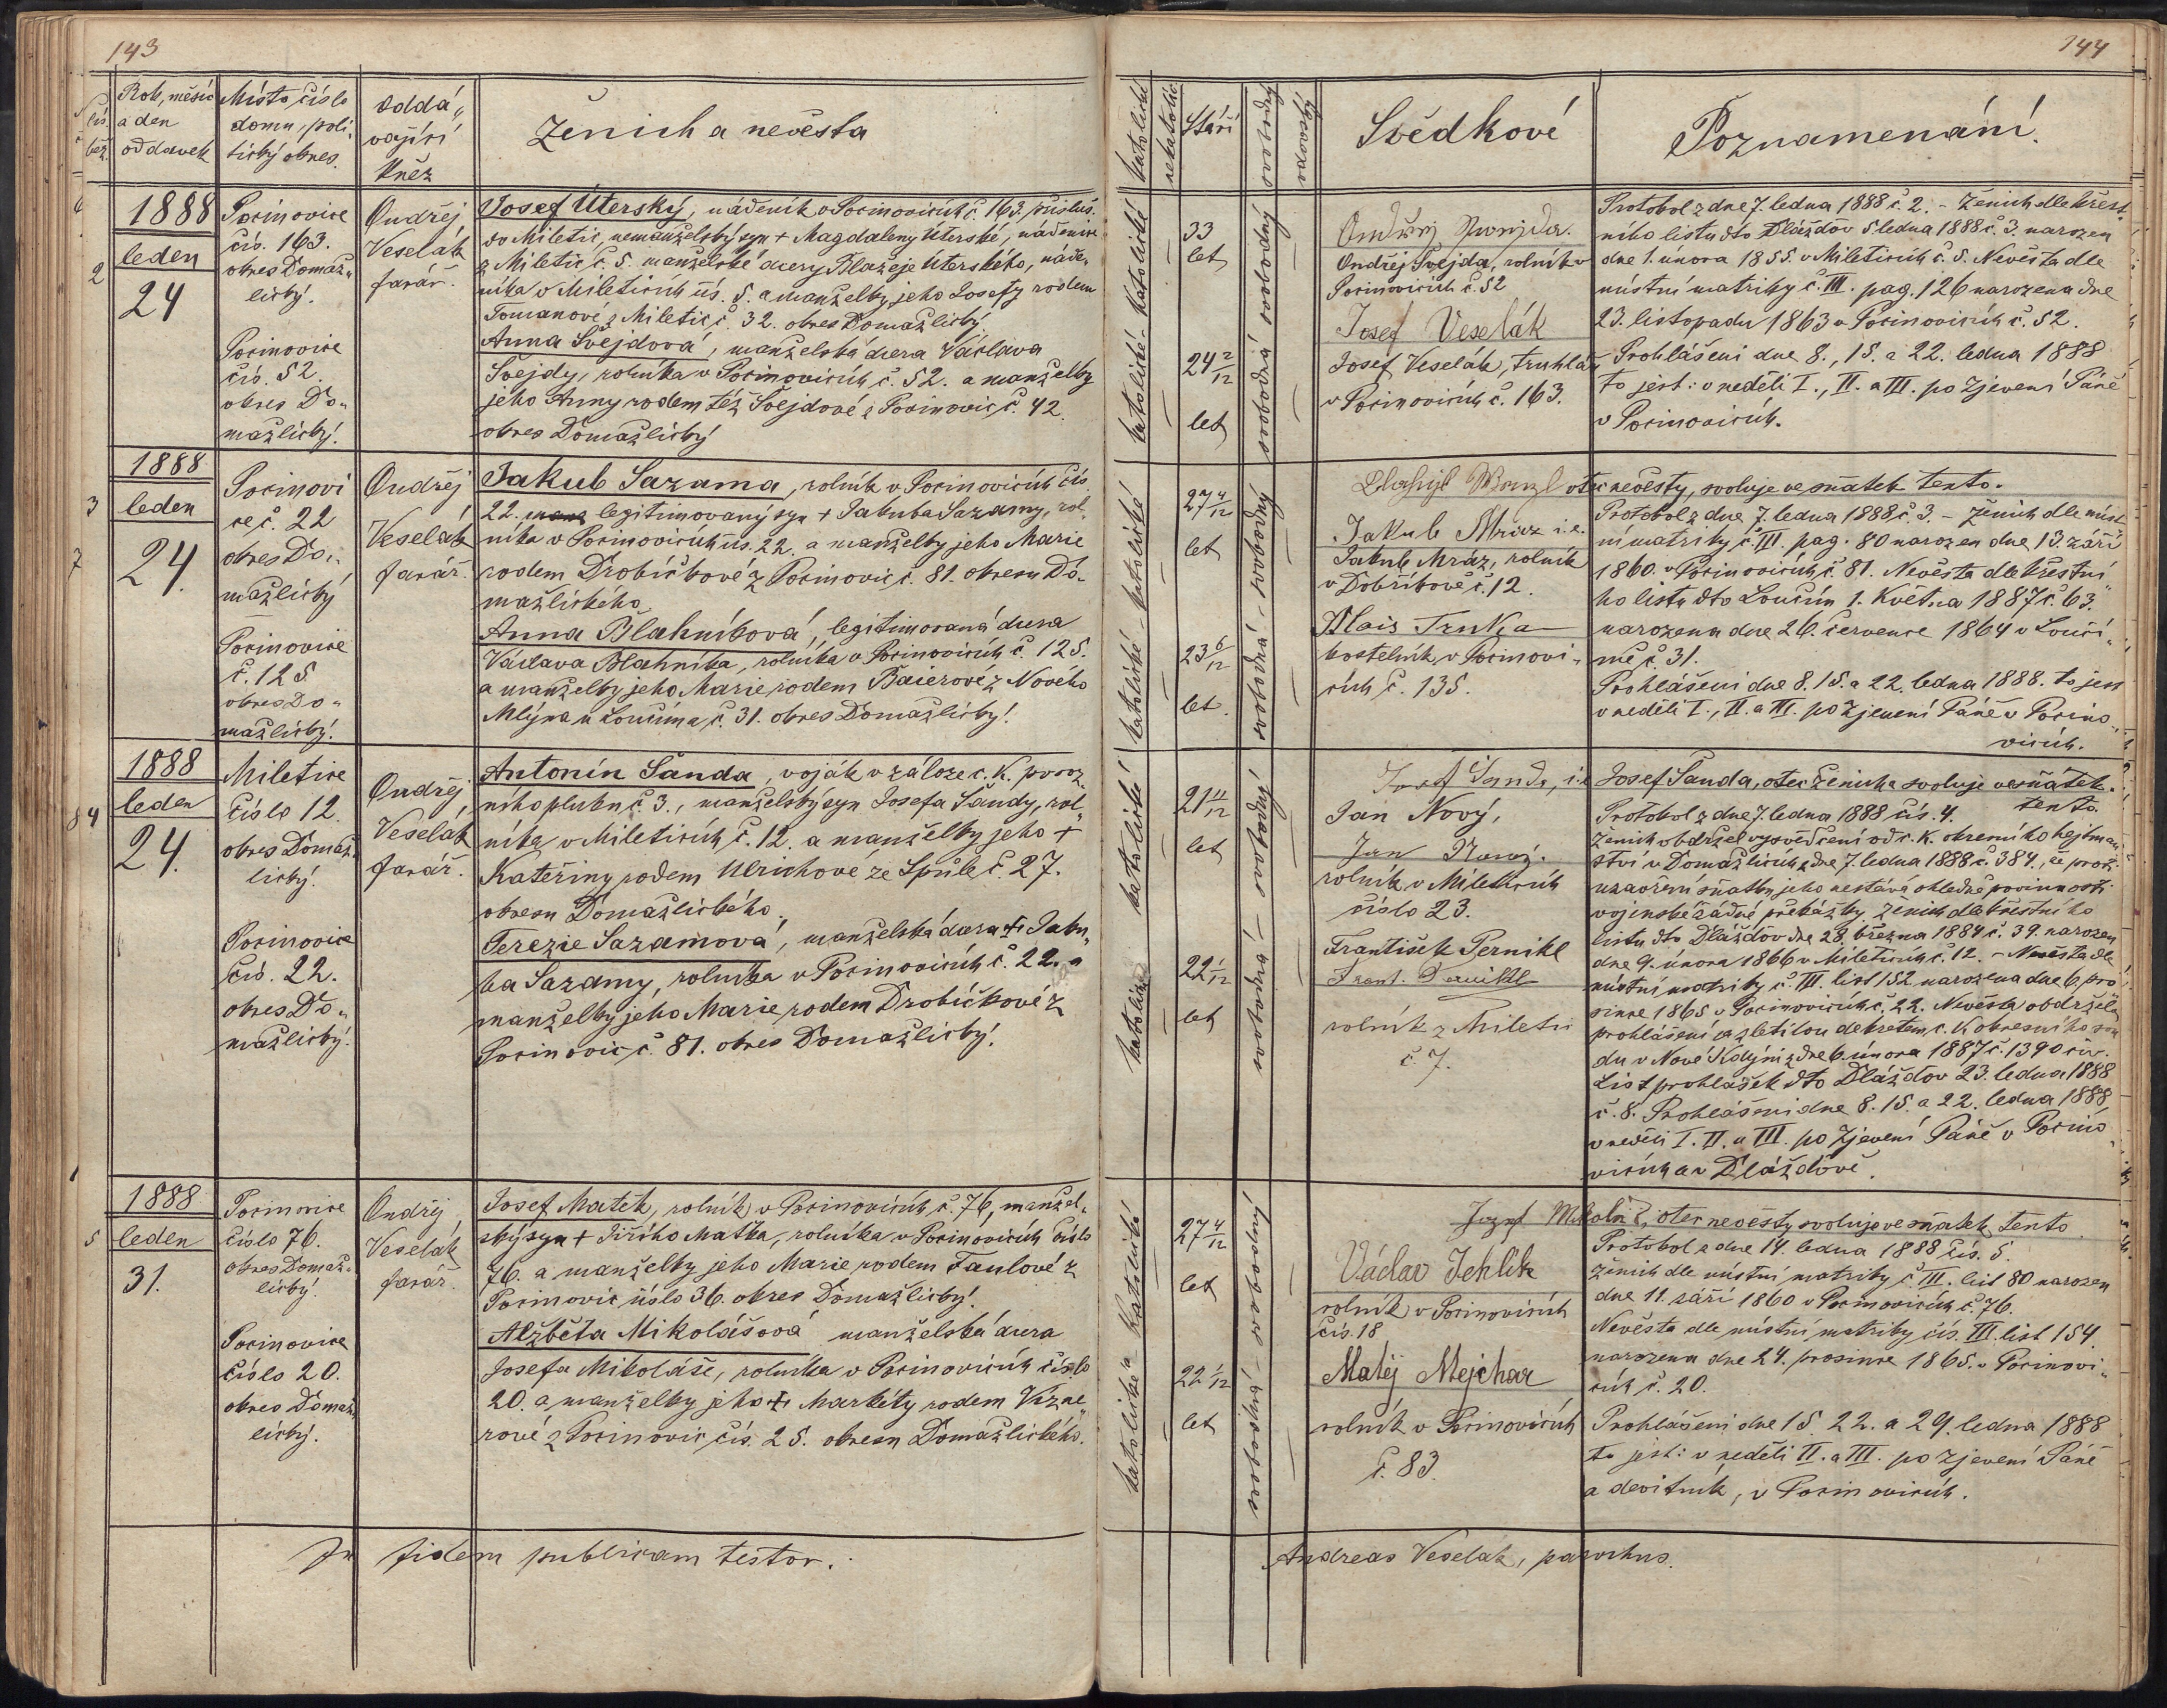 143
144
Rok, měsíc
a den
oddavek
Místo, číslo
domu, poli-
tický okres.
oddá-
vající
Kněz
Ženich a nevěsta
katolické
nekatolic
Stáří
svobodný
vdovský
Svědkové
Poznamenání.
1888
leden
24
2
Pocinovice
čís. 163.
okres Domaž-
lický.
Pocinovice
čís. 52.
okres Do-
mažlický.
Ondřej
Veselák
farář.
Josef Úterský, nádeník v Pocinovicích č. 163. přísluš.
do Miletic, nemanželský syn + Magdaleny Uterské, nádenice
z Miletic č. 5. manželské dcery Blažeje Uterského, náde-
níka v Mileticích čís. 5. a manželky jeho Josefy rodem
Tomanové z Miletic č. 32. okres Domažlický.
Anna Švejdová, manželská dcera Václava
Švejdy, rolníka v Pocinovicích č. 52. a manželky
jeho Anny rodem též Švejdové z Pocinovic č. 42.
okres Domažlický
katolické - katolické
33
let
24 2/12
let
svobodná svobodný
Ondřej Švejda, rolník v
Pocinovicích č. 52
Josef Veselák
Josef Veselák, truhlář
v Pocinovicích č. 163.
Protokol z dne 7. ledna 1888 č. 2. - Ženich dle křest-
ního listu dto Dlažďov 5. ledna 1888 č. 3. narozen
dne 1. února 1855. v Mileticích č. 5. Nevěsta dle
místní matriky č. III. pag. 126 narozena dne
23. listopadu 1863 v Pocinovicích č. 52.
Prohlášení dne 8., 15. a 22. ledna 1888
to jest: v neděli I., II. a III. po Zjevení Páně
v Pocinovicích.
1888
3
leden
24.
7
Pocinovi
ce č. 22
okres Do-
mažlický
Pocinovice
č. 125
okres Do-
mažlický.
Ondřej
Veselák
farář.
Jakub Sazama, rolník v Pocinovicích čís.
22. legitimovaný syn + Jakuba Sazamy, rol-
níka v Pocinovicích čís. 22. a manželky jeho Marie
rodem Drobíčkové z Pocinovic č. 81. okresu Do-
mažlického
Anna Blahníková, legitimovaná dcera
Václava Blahníka, rolníka v Pocinovicích č. 125.
a manželky jeho Marie rodem Baierové z Nového
Mlýna u Loučíma č. 31. okres Domažlický.
katolické - katolické
27 4/12
let
23 6/12
let.
svobodná - svobodný
otec nevěsty, svoluje ve sňatek tento.
Jakub Mráz i.e.
Jakub Mráz, rolník
v Dobříkově č. 12.
Alois Trnka
kostelník v Pocinovi-
cích č. 135.
Protokol z dne 7. ledna 1888 č. 3. - Ženich dle míst-
ní matriky č. III. pag. 80 narozen dne 13. září
1860. v Pocinovicích č. 81. Nevěsta dle křestní
ho listu dto Loučím 1. Května 1887 č. 63.
narozena dne 26. července 1864 v Loučí-
mě č. 31.
Prohlášení dne 8. 15. a 22. ledna 1888. to jest
v neděli I., II. a III. po Zjevení Páně v Pocino-
vicích.
1888
4
leden
24.
Miletice
číslo 12.
okres Domaž-
lický.
Pocinovice
čís. 22.
okres Do-
mažlický.
Ondřej
Veselák
farář.
Antonín Šanda, voják v záloze c. K. povoz-
ního pluku č. 3., manželský syn Josefa Šandy, rol-
níka v Mileticích č. 12. a manželky jeho +
Kateřiny rodem Ulrichové ze Spůle č. 27.
okresu Domažlického.
Terezie Sazamová, manželská dcera + Jaku-
ba Sazamy, rolníka v Pocinovicích č. 22. a
manželky jeho Marie rodem Drobíčkové z
Pocinovic č. 81. okres Domažlický.
katolická katolické
21 11/12
let
22 1/12
let
svobodná - svobodný
Josef Šanda, i.e.
Jan Nový,
Jan Nový.
rolník v Mileticích
číslo 23.
František Pernikl
Frant. Pernikl
rolník z Miletic
č. 7.
Josef Šanda, otec ženicha svoluje ve sňatek
tento.
Protokol z dne 7. ledna 1888 čís. 4.
Ženich obdržel vysvědčení od c. K. okresního hejtman-
ství v Domažlicích z dne 7. ledna 1888 č. 384, že proti
uzavření sňatku jeho nestává ohledně povinnosti
vojenské žádné překážky. Ženich dle křestního
listu dto Dlážďov dne 28. března 1884 č. 39. narozen
dne 9. února 1866 v Mileticích č. 12. - Nevěsta dle
místní matriky č. III. list 152 narozena dne 6. pro
since 1865 v Pocinovicích č. 22. Nevěsta obdržela
prohlášení za zletilou dekretem c. K okresního sou
du v Nové Kdyni z dne 6. února 1887 č. 1390 civ.
List prohlášek dto Dlážďov 23. ledna 1888
č. 8. Prohlášení dne 8. 15. a 22. ledna 1888
v neděli I. II. a III. po Zjevení Páně v Pocino-
vicích a v Dlážďově.
1888
5
leden
31.
Pocinovice
číslo 76.
okres Domaž-
lický.
Pocinovice
číslo 20.
okres Domaž-
lický.
Ondřej
Veselák
farář.
Josef Matek, rolník v Pocinovicích č. 76, manžel-
ský syn + Jiřího Matka, rolníka v Pocinovicích číslo
76. a manželky jeho Marie rodem Faulové z
Pocinovic číslo 36. okres Domažlický.
Alžběta Mikolášová manželská dcera
Josefa Mikoláše, rolníka v Pocinovicích číslo
20. a manželky jeho + Markéty rodem Vizne-
rové z Pocinovic čís. 25. okresu Domažlického.
katolická - katolické
27 4/12
let
22 1/12
let
svobodná - svobodný
Václav Jehlík
rolník v Pocinovicích
čís. 18
Matěj Mejchar
rolník v Pocinovicích
č. 83.
Jozef Mikoláš, otec nevěsty svoluje ve sňatek tento
Protokol z dne 14. ledna 1888 čís. 5.
Ženich dle místní matriky č. III. list 80 narozen
dne 11. září 1860 v Pocinovicích č. 76.
Nevěsta dle místní matriky čís. III. list 154
narozena dne 24. prosince 1865. v Pocinovi-
cích č. 20.
Prohlášení dne 15. 22. a 29. ledna 1888
to jest: v neděli II. a III. po Zjevení Páně
a devítník, v Pocinovicích.
In fidem publicam testor.
Andreas Veselák, parochus.